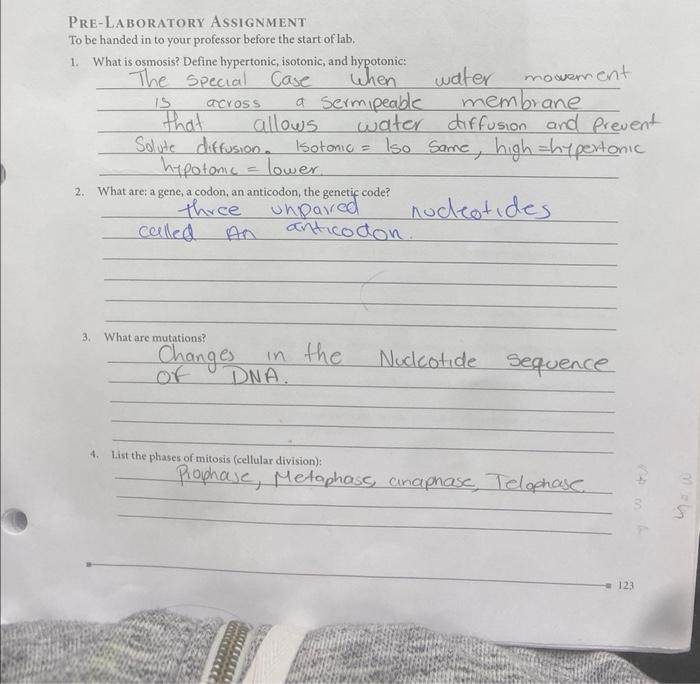 PRE-LABORATORY ASSIGNMENT
To be handed in to your professor before the start of lab.
1. What is osmosis? Define hypertonic, isotonic, and hypotonic:
The special Case when water movement
is across a sermipeable membrane
that allows water diffusion and Prevent
Solute diffusion. Isotonic = Iso Same, high = hypertonic
hypotonic = lower.
2. What are: a gene, a codon, an anticodon, the genetic code?
three unpaired nucleotides
called An anticodon.
3. What are mutations?
Changes in the Nucleotide sequence
of DNA.
4. List the phases of mitosis (cellular division):
Prophase, Metaphase, anaphase, Telophase
123